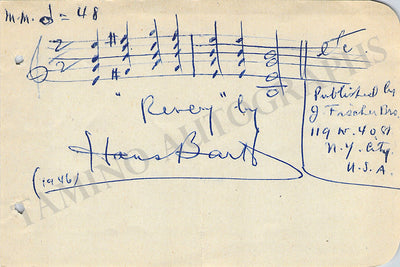 M.M. 𝅗𝅥 = 48
etc
"Revery" by
Hans Barth
(1946)
Published by
J. Fischer Bro.
119 W. 40 St.
N.Y. City.
U.S.A.
TAMINO AUTOGRAPHS